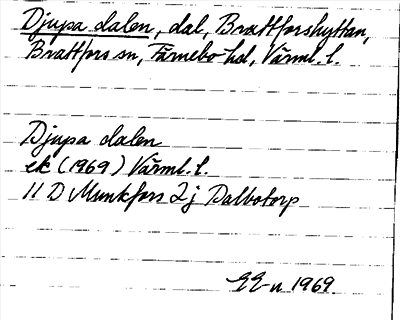 Djupa dalen, dal, Brattforshyttan,
Brattfors sn, Färnebo hd, Värml. l.
Djupa dalen
ek (1969) Värml. l.
11 D Munkfors 2 j Dalbotorp
EE-n 1969.